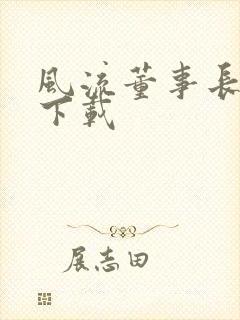 風流董事長
下載
展志田